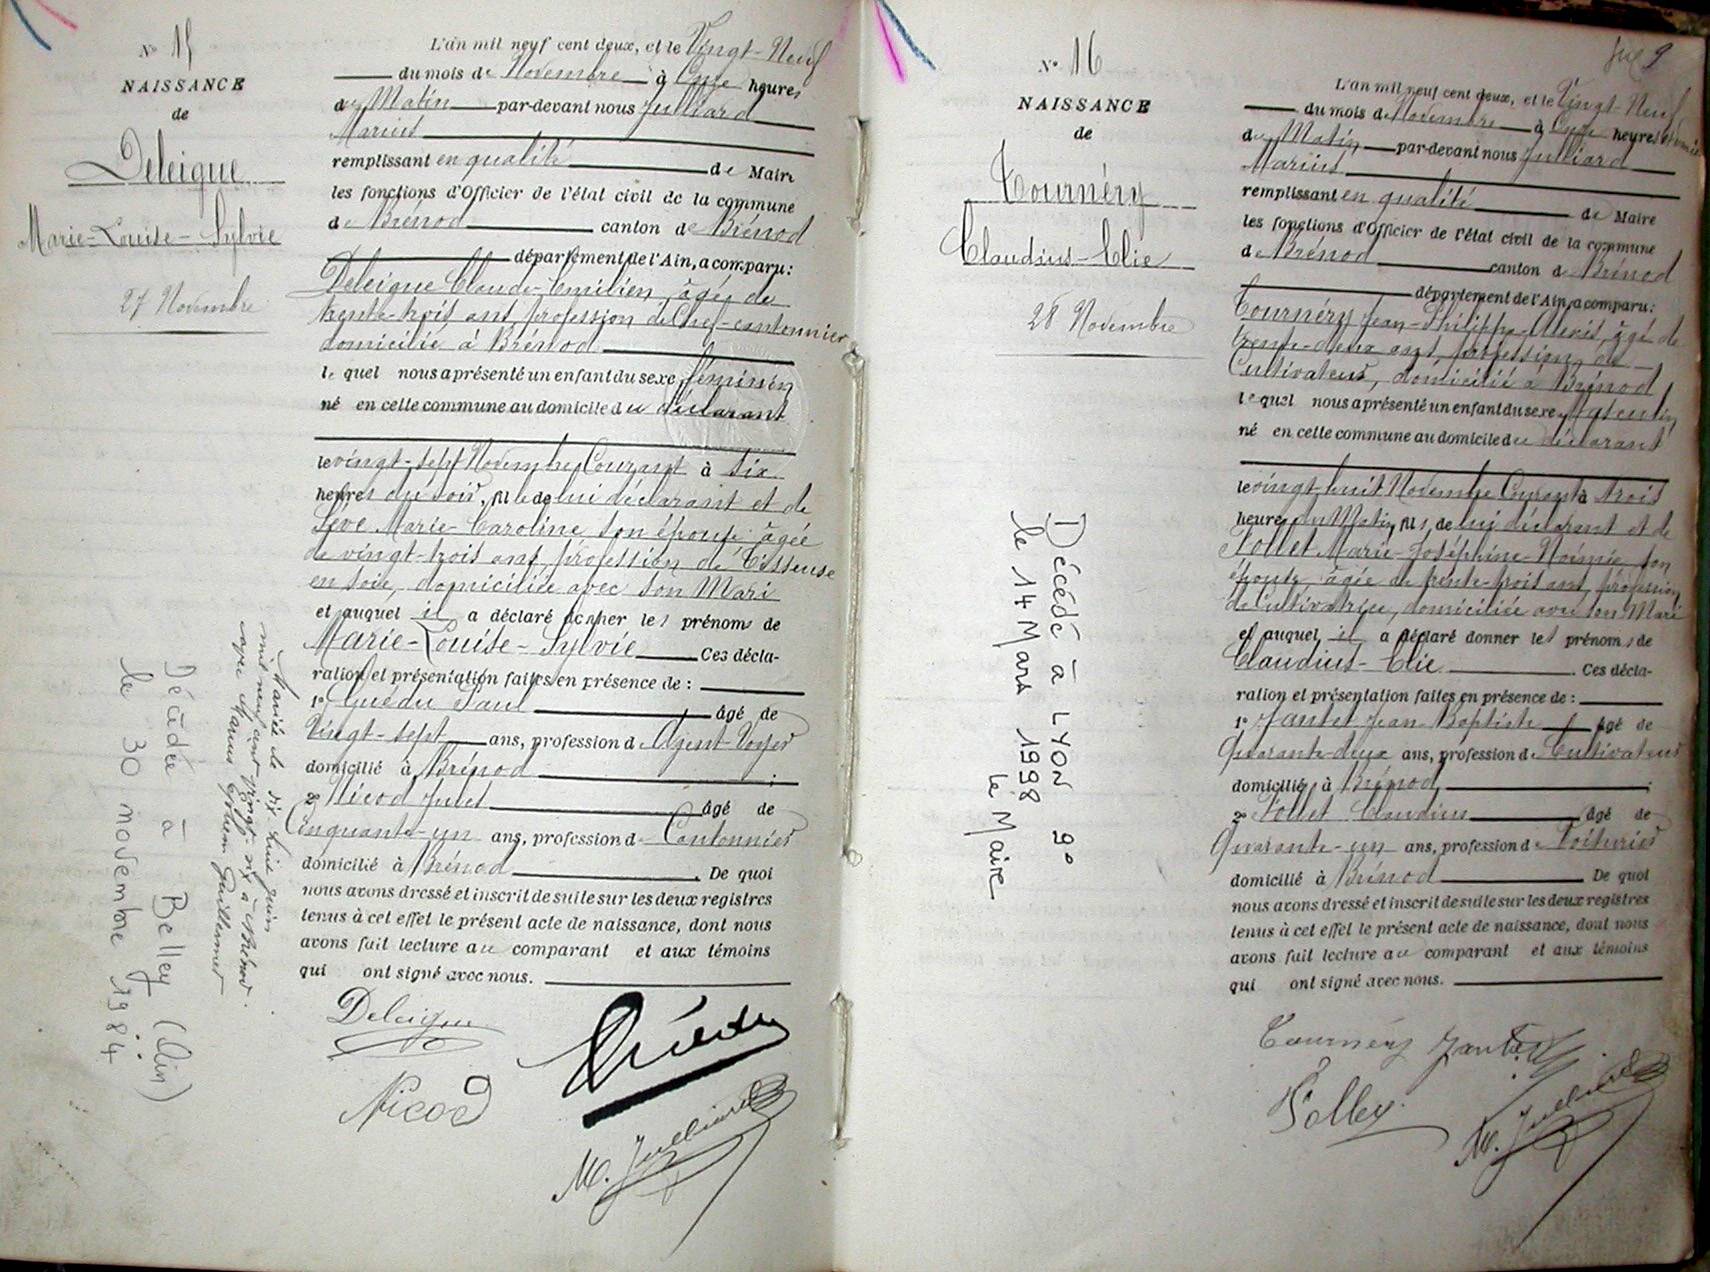 N° 15
NAISSANCE
de
Deleigue
Marie-Louise-Sylvie
27 Novembre
L'an mil neuf cent deux, et le Vingt-Neuf
du mois de Novembre à Onze heures
du Matin par-devant nous Julliard
Marius
remplissant en qualité de Maire
les fonctions d'Officier de l'état civil de la commune
de Brénod canton de Brénod
département de l'Ain, a comparu:
Deleigue Claude-Emilien, âgé de
trente-trois ans profession de Chef-cantonnier
domicilié à Brénod
le quel nous a présenté un enfant du sexe féminin
né en cette commune au domicile du déclarant
le vingt-sept Novembre Courant à six
heures du soir, fille de lui déclarant et de
Sève Marie-Caroline son épouse âgée
de vingt-trois ans profession de Tisseuse
en soie, domiciliée avec son Mari
et auquel il a déclaré donner les prénoms de
Marie-Louise-Sylvie Ces décla-
ration et présentation faites en présence de :
1° Guédu Paul âgé de
Vingt-sept ans, profession d' Agent-Voyer
domicilié à Brénod ;
2° Nicod Jules âgé de
Cinquante-un ans, profession de Cantonnier
domicilié à Brénod. De quoi
nous avons dressé et inscrit de suite sur les deux registres
tenus à cet effet le présent acte de naissance, dont nous
avons fait lecture au comparant et aux témoins
qui ont signé avec nous.
Deleigue
Nicod
M. Julliard
Mariée le dix huit juin
mil neuf cent vingt-six à Brénod
avec Marius Ephrem Guillermet
Décédée à Belley (Ain)
le 30 novembre 1984
N° 16
NAISSANCE
de
Tournéry
Claudius-Elie
28 Novembre
L'an mil neuf cent deux, et le Vingt-Neuf
du mois de Novembre à Onze heures
du Matin par-devant nous Julliard
Marius
remplissant en qualité de Maire
les fonctions d'Officier de l'état civil de la commune
de Brénod canton de Brénod
département de l'Ain, a comparu:
Tournéry Jean-Philippe-Alexis, âgé de
trente-deux ans, profession de
Cultivateur, domicilié à Brénod
le quel nous a présenté un enfant du sexe Masculin
né en cette commune au domicile du déclarant
le vingt-huit Novembre Courant à trois
heures du Matin, fils de lui déclarant et de
Follet Marie-Joséphine-Noémie son
épouse âgée de trente-trois ans, profession
de Cultivatrice, domiciliée avec son Mari
et auquel il a déclaré donner les prénoms de
Claudius-Elie. Ces décla-
ration et présentation faites en présence de :
1° Jantet Jean Baptiste âgé de
Quarante-deux ans, profession de Cultivateur
domicilié à Brénod ;
2° Follet Claudius âgé de
Quarante-un ans, profession de Voiturier
domicilié à Brénod. De quoi
nous avons dressé et inscrit de suite sur les deux registres
tenus à cet effet le présent acte de naissance, dont nous
avons fait lecture au comparant et aux témoins
qui ont signé avec nous.
Tournéry Jantet
M. Julliard
Décédé à LYON 9°
le 14 Mars 1998
le Maire